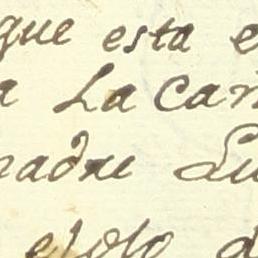 que esta e
a La Car
madre Su
esolo d